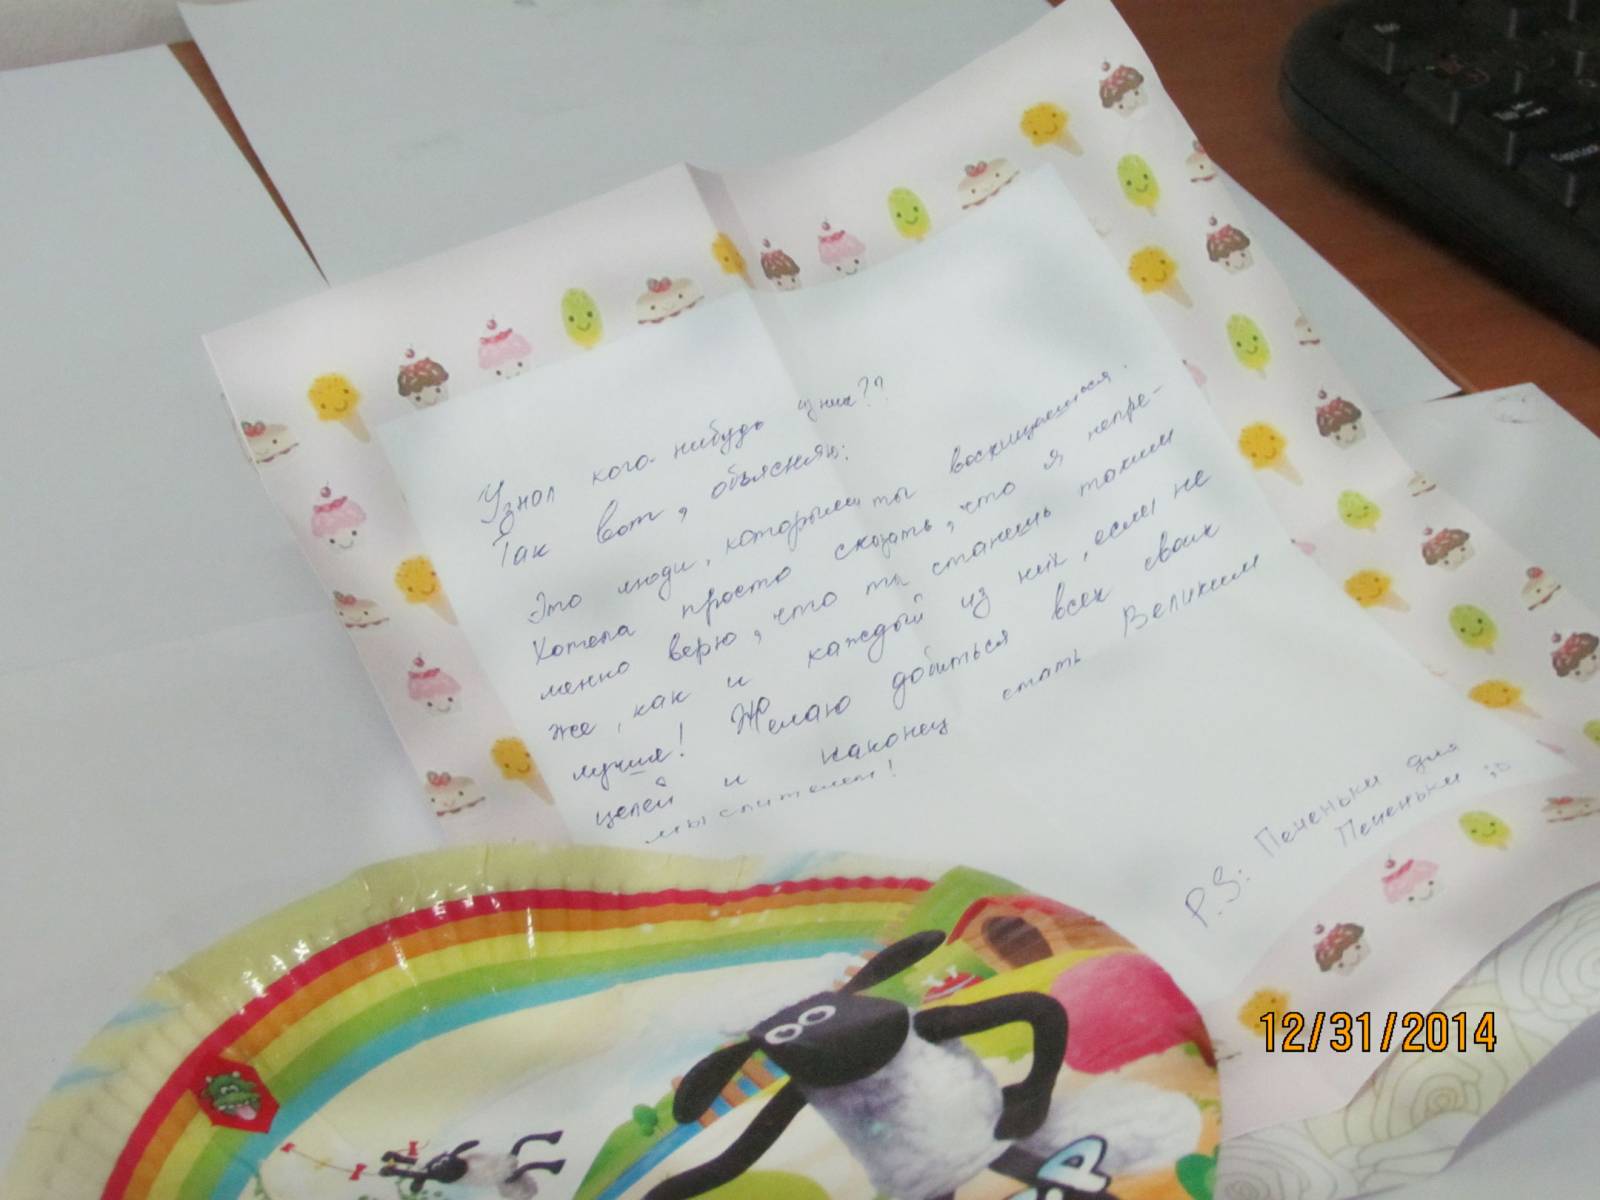 Узнал кого-нибудь из них??
Так вот, объясняю:
Это люди, которыми ты восхищаешься.
Хотела просто сказать, что я непре-
менно верю, что ты станешь таким
же, как и каждый из них, если не
лучше! Желаю добиться всех своих
целей и наконец стать Великим
мыслителем!
P.S: Печеньки для
Печеньки ;D
12/31/2014
Esc
CapsLock